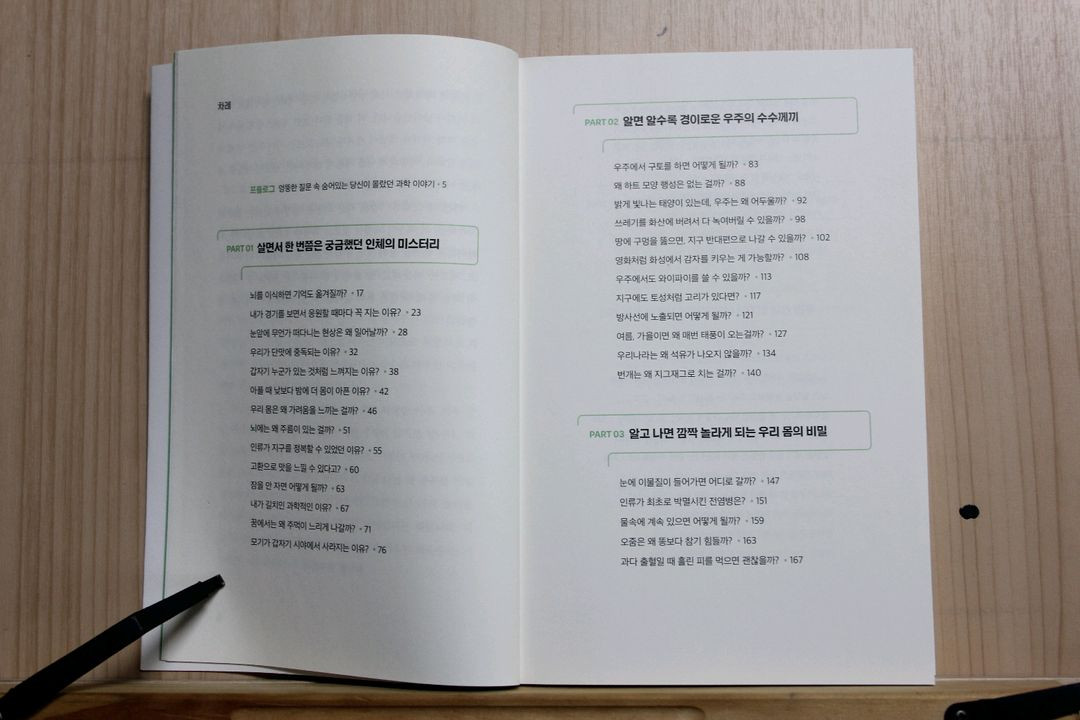 차례
프롤로그 엉뚱한 질문 속 숨어있는 당신이 몰랐던 과학 이야기 • 5
PART 01 살면서 한 번쯤은 궁금했던 인체의 미스터리
뇌를 이식하면 기억도 옮겨질까? • 17
내가 경기를 보면서 응원할 때마다 꼭 지는 이유? • 23
눈앞에 무언가 떠다니는 현상은 왜 일어날까? • 28
우리가 단맛에 중독되는 이유? • 32
갑자기 누군가 있는 것처럼 느껴지는 이유? • 38
아플 때 낮보다 밤에 더 몸이 아픈 이유? • 42
우리 몸은 왜 가려움을 느끼는 걸까? • 46
뇌에는 왜 주름이 있는 걸까? • 51
인류가 지구를 정복할 수 있었던 이유? • 55
고환으로 맛을 느낄 수 있다고? • 60
잠을 안 자면 어떻게 될까? • 63
내가 길치인 과학적인 이유? • 67
꿈에서는 왜 주먹이 느리게 나갈까? • 71
모기가 갑자기 시야에서 사라지는 이유? • 76
PART 02 알면 알수록 경이로운 우주의 수수께끼
우주에서 구토를 하면 어떻게 될까? • 83
왜 하트 모양 행성은 없는 걸까? • 88
밝게 빛나는 태양이 있는데, 우주는 왜 어두울까? • 92
쓰레기를 화산에 버려서 다 녹여버릴 수 있을까? • 98
땅에 구멍을 뚫으면, 지구 반대편으로 나갈 수 있을까? • 102
영화처럼 화성에서 감자를 키우는 게 가능할까? • 108
우주에서도 와이파이를 쓸 수 있을까? • 113
지구에도 토성처럼 고리가 있다면? • 117
방사선에 노출되면 어떻게 될까? • 121
여름, 가을이면 왜 매번 태풍이 오는걸까? • 127
우리나라는 왜 석유가 나오지 않을까? • 134
번개는 왜 지그재그로 치는 걸까? • 140
PART 03 알고 나면 깜짝 놀라게 되는 우리 몸의 비밀
눈에 이물질이 들어가면 어디로 갈까? • 147
인류가 최초로 박멸시킨 전염병은? • 151
물속에 계속 있으면 어떻게 될까? • 159
오줌은 왜 똥보다 참기 힘들까? • 163
과다 출혈일 때 흘린 피를 먹으면 괜찮을까? • 167